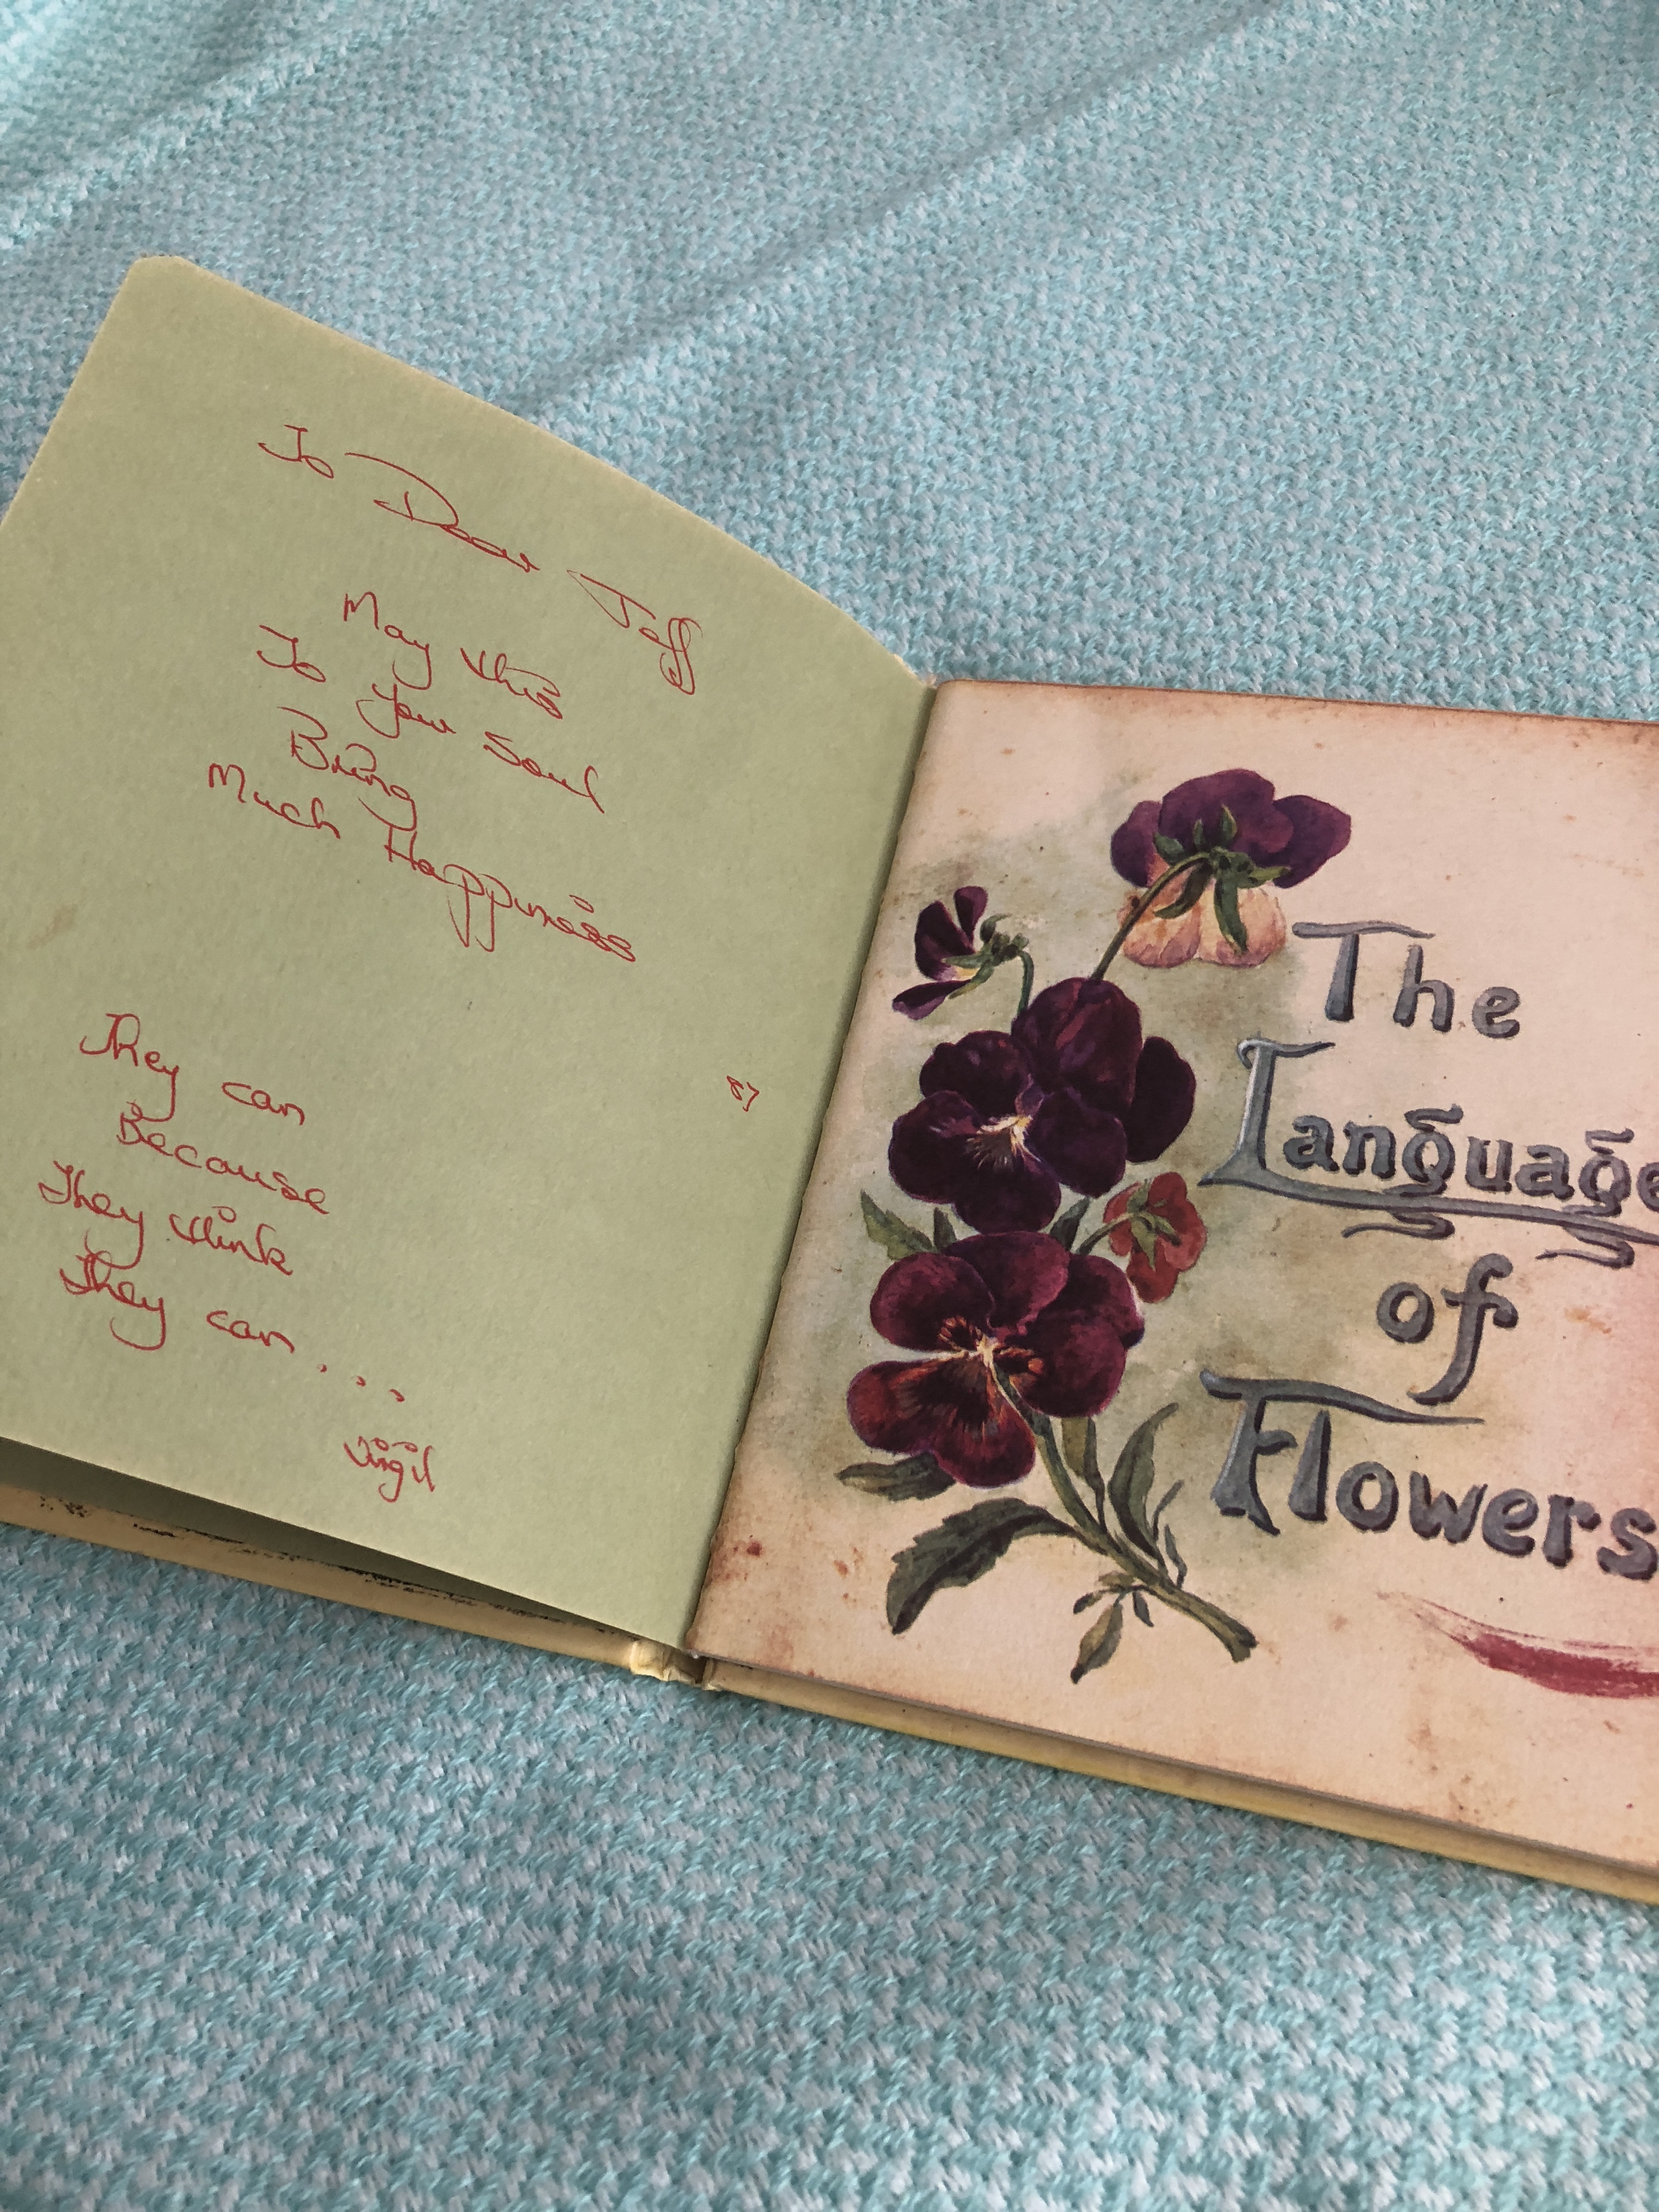 To Dear Jeff
May this
To Your Soul
Bring
Much Happiness
87
They can
Because
They think
They can...
Virgil
The
Language
of
Flowers